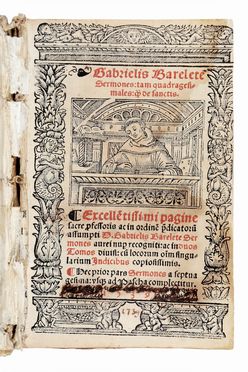 Gabrielis Barelete
Sermones: tam quadragesi-
males: q̃ de sanctis.
¶ Excellẽtissimi pagine
sacre p̃fessoris ac in ordinẽ p̃dicatorũ
assumpti D. Gabrielis Barelete Ser
mones aurei nup recogniti: ac in duos
Tomos diuisi: cũ locorum oĩm singu-
larium Indicibus copiosissimis.
¶ Hec prior pars Sermones a septua
gesima: vsq̃ ad Pascha complectitur.